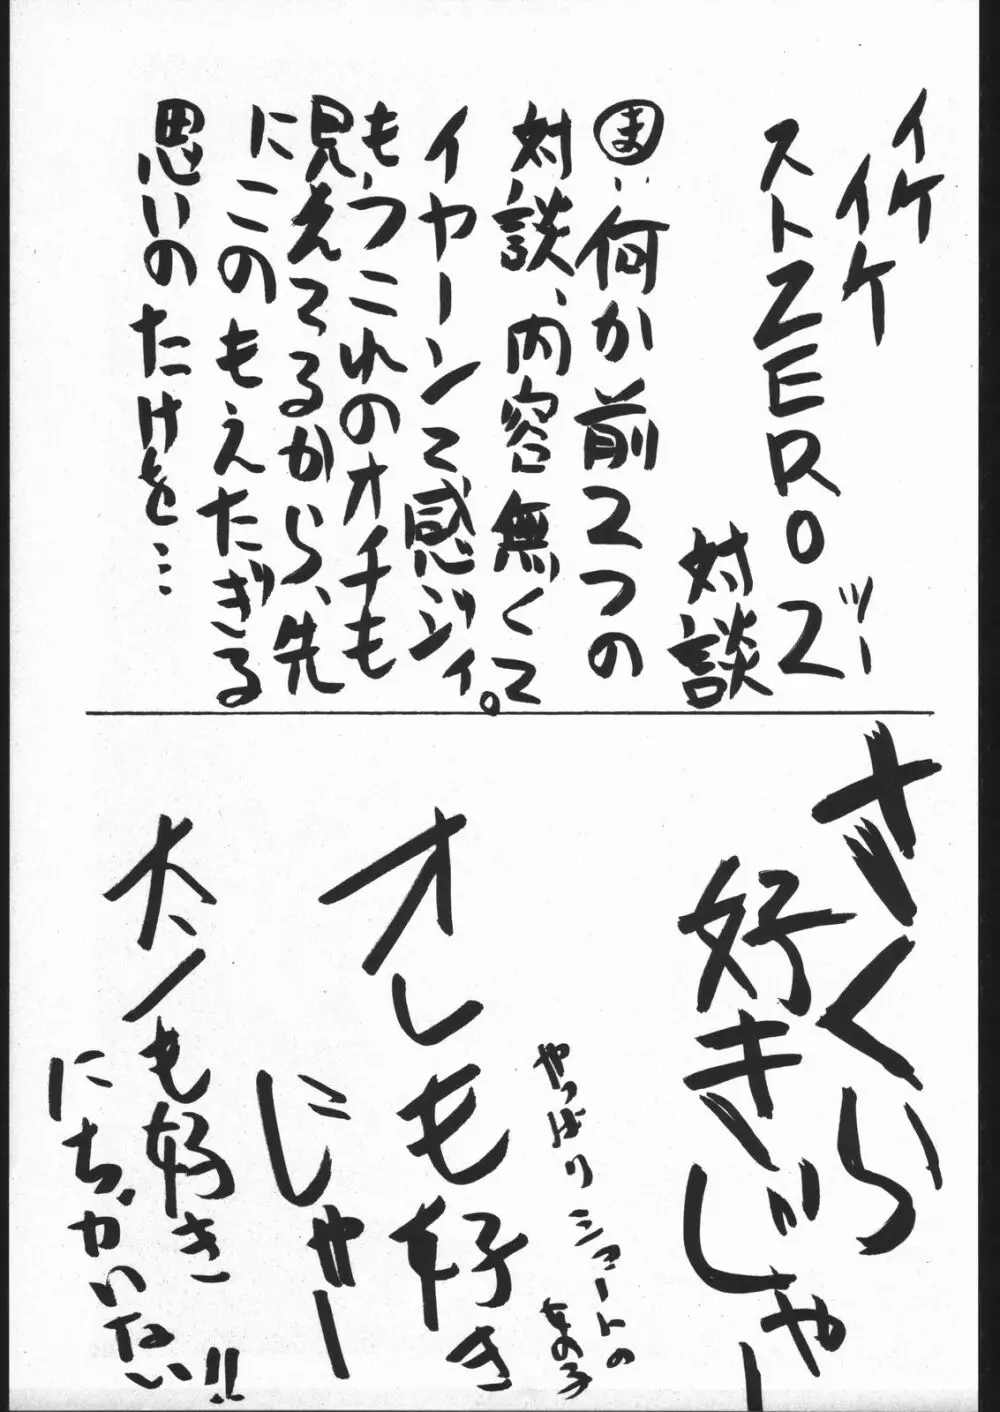 イケ
イイケ
ストZERO2
ツー
対談
ま:何か前2つの
対談、内容無くて
イヤーンて感ジィ。
もうこれのオチも
見えてるから、先
にこのもえたぎる
思いのたけを…
さくら
好きじゃー
やっぱりショートの
女の子
オレも好き
にゃー
大ノも好き
にちがいない!!